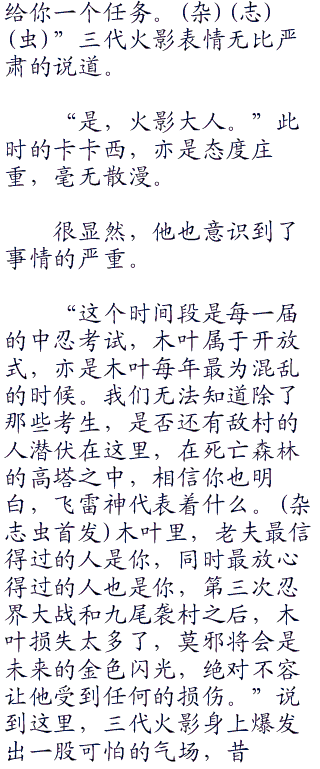 给你一个任务。(杂)(志)
(虫)”三代火影表情无比严
肃的说道。
“是，火影大人。”此
时的卡卡西，亦是态度庄
重，毫无散漫。
很显然，他也意识到了
事情的严重。
“这个时间段是每一届
的中忍考试，木叶属于开放
式，亦是木叶每年最为混乱
的时候。我们无法知道除了
那些考生，是否还有敌村的
人潜伏在这里，在死亡森林
的高塔之中，相信你也明
白，飞雷神代表着什么。(杂
志虫首发)木叶里，老夫最信
得过的人是你，同时最放心
得过的人也是你，第三次忍
界大战和九尾袭村之后，木
叶损失太多了，莫邪将会是
未来的金色闪光，绝对不容
让他受到任何的损伤。”说
到这里，三代火影身上爆发
出一股可怕的气场，昔